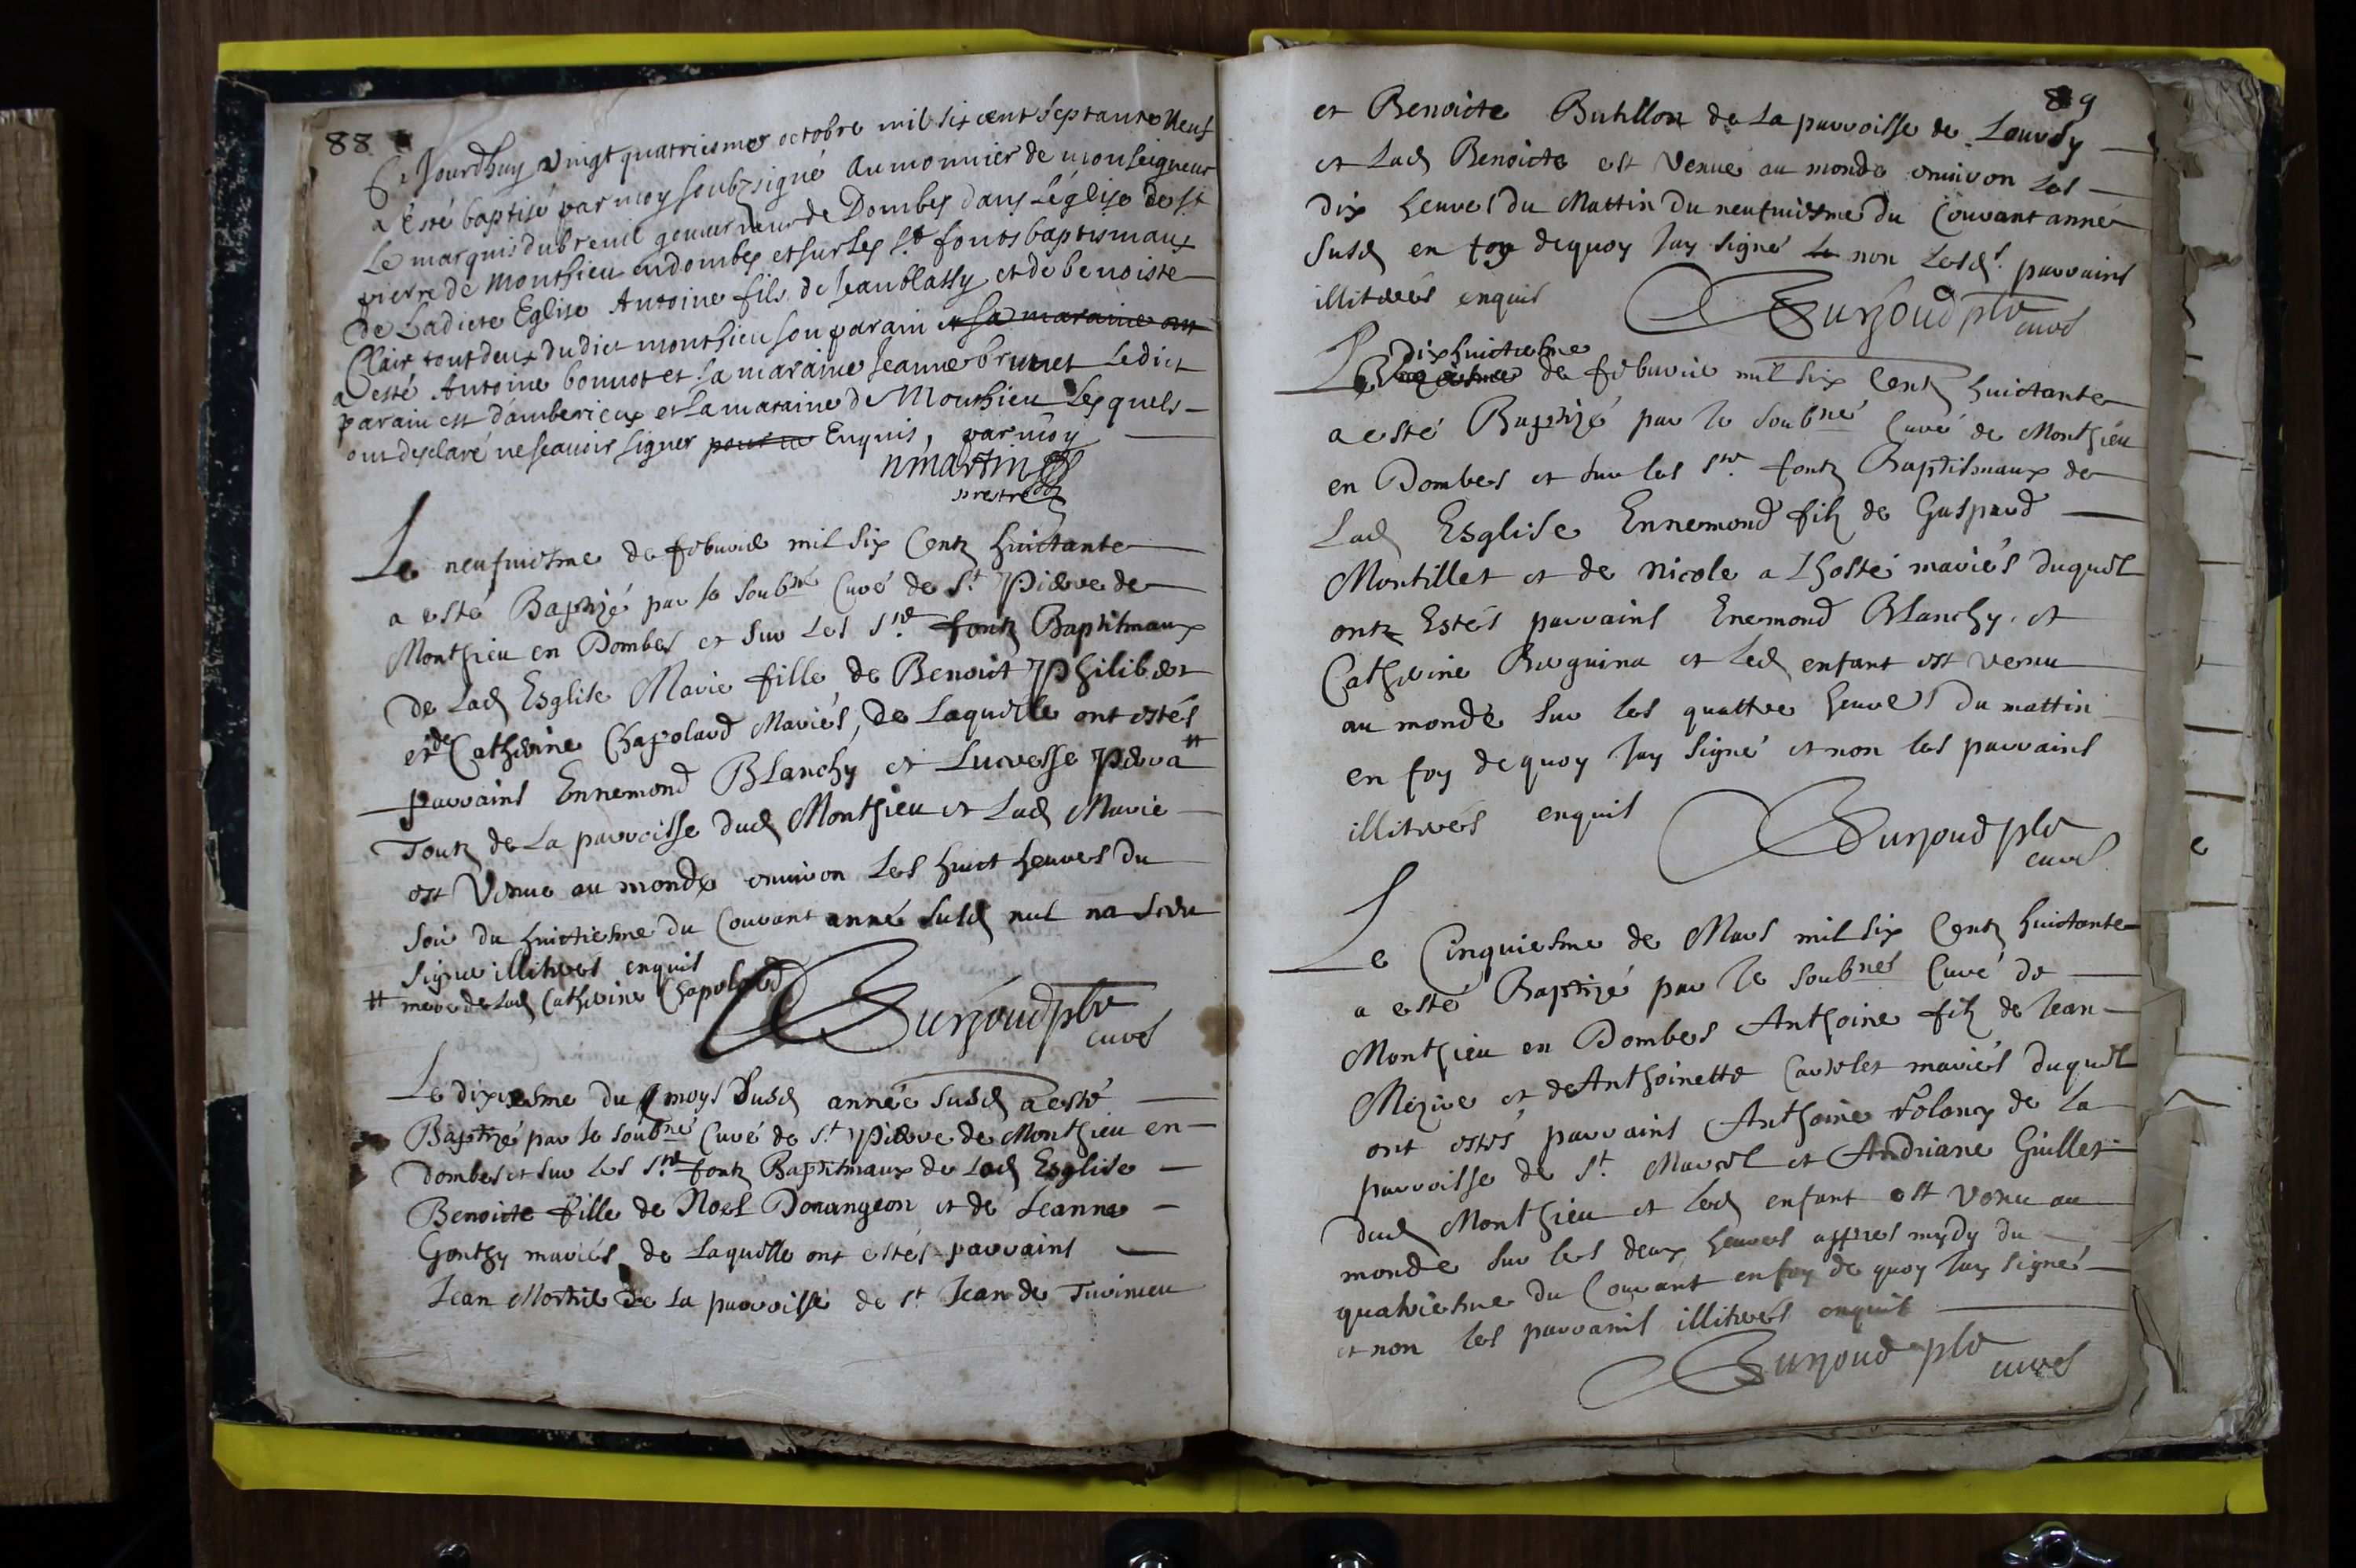 88
Ce Jourdhuy vingt quatriesme octobre mil six cent septante neuf
a esté baptisé par moy soubzsigné Aumonnier de monseigneur
Le marquis dubreuil gouuerneur de Dombes dans L'église de st
pierre de Monthieu en dombes et sur les sts fonts baptismaux
de Ladicte Eglise Antoine fils de Jean blassy et de benoiste
Clair tout deux dudict monthieu son parain et sa maraine ont
a esté Antoine bonnot et sa maraine Jeanne brunet Ledict
parain est d'amberieux et La maraine de Monthieu Lesquels
ont desclaré ne scauoir signer pour ce Enquis, par moy
nmartin
prestre
Le neufuiesme de febvrié mil six Centz huictante
a esté Baptizé par le soubné Curé de St Pierre de
Monthieu en Dombes et sur Les Stes fontz Baptismaux
de Lad Esglise Marie fille de Benoict Philibert
et de Catherine Chapolard Mariés, de Laquelle ont estés
parrains Ennemond Blanchy et Lucresse Pera #
Toutz de La parroisse dud Monthieu et Lad Marie
est Venue au monde enuiron Les huict heures du
soir du huictiesme du Courant anné susd nul na sceu
signer illiterés enquis
# mere de Lad Catherine Chapolard
Surjoud pbr
curé
Le dixiesme du moys susd année susd a esté
Baptizé par le soubné Curé de St Pierre de Monthieu en
Dombes et sur Les Stes fontz Baptismaux de Lad Esglise
Benoicte fille de Noel Donangeon et de Jeanne
Gonthy mariés de Laquelle ont estés parrains
Jean Mortie de La parroisse de St Jean de Turinieu
89
et Benoicte Butillon de La parroisse de Louvoy
et Lad Benoicte est Venue au monde enuiron Les
dix heures du Mattin du neufuiesme du Courant anné
susd en foy dequoy Jay signé le non Lesds parrains
illiterés enquis
Surjoud pbr
curé
dixhuictiesme
Le de febvrié mil six Centz huictante
a esté Baptizé par le soubné Curé de Monthieu
en Dombes et sur les Stes fontz Baptismaux de
Lad Esglise Ennemond filz de Gaspard
Montillet et de Nicole a Lhoste mariés duquel
ontz Estés parrains Enemond Blanchy et
Catherine Berguina et Led enfant est venu
au monde sur les quattre heures du mattin
en foy dequoy Jay signé et non les parrains
illiterés enquis
Surjoud pbr
curé
Le Cinquiesme de Mars mil six Centz huictante
a esté Baptizé par le soubnés Curé de
Monthieu en Dombes Anthoine filz de Jean
Mezire et de Anthoinette Carrelet mariés duquel
ont estés parrains Anthoine Folony de La
parroisse de St Marcel et Andriane Guillet
dud Monthieu et Led enfant est venu au
monde sur les deux heures appres mydy du
quatriesme du Courant en foy de quoy Jay signé
et non les parrains illiterés enquis
Surjoud pbr
curé